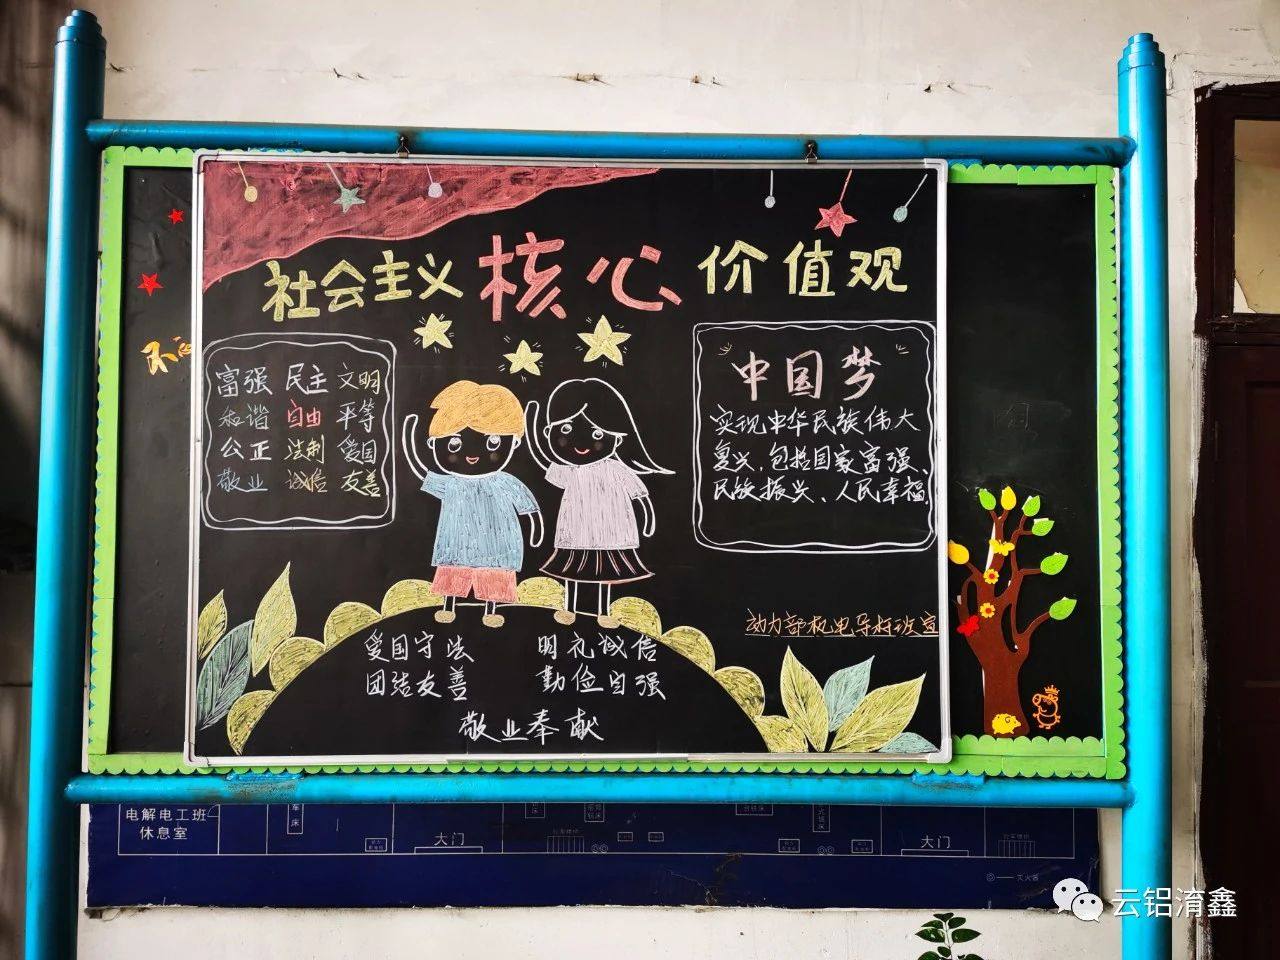 社会主义核心价值观
富强 民主 文明
和谐 自由 平等
公正 法制 爱国
敬业 诚信 友善
中国梦
实现中华民族伟大
复兴,包括国家富强、
民族振兴、人民幸福.
动力部机电导杆班宣
爱国守法 明礼诚信
团结友善 勤俭自强
敬业奉献
电解电工班
休息室
车床
大门
大门
灭火器
云铝淯鑫